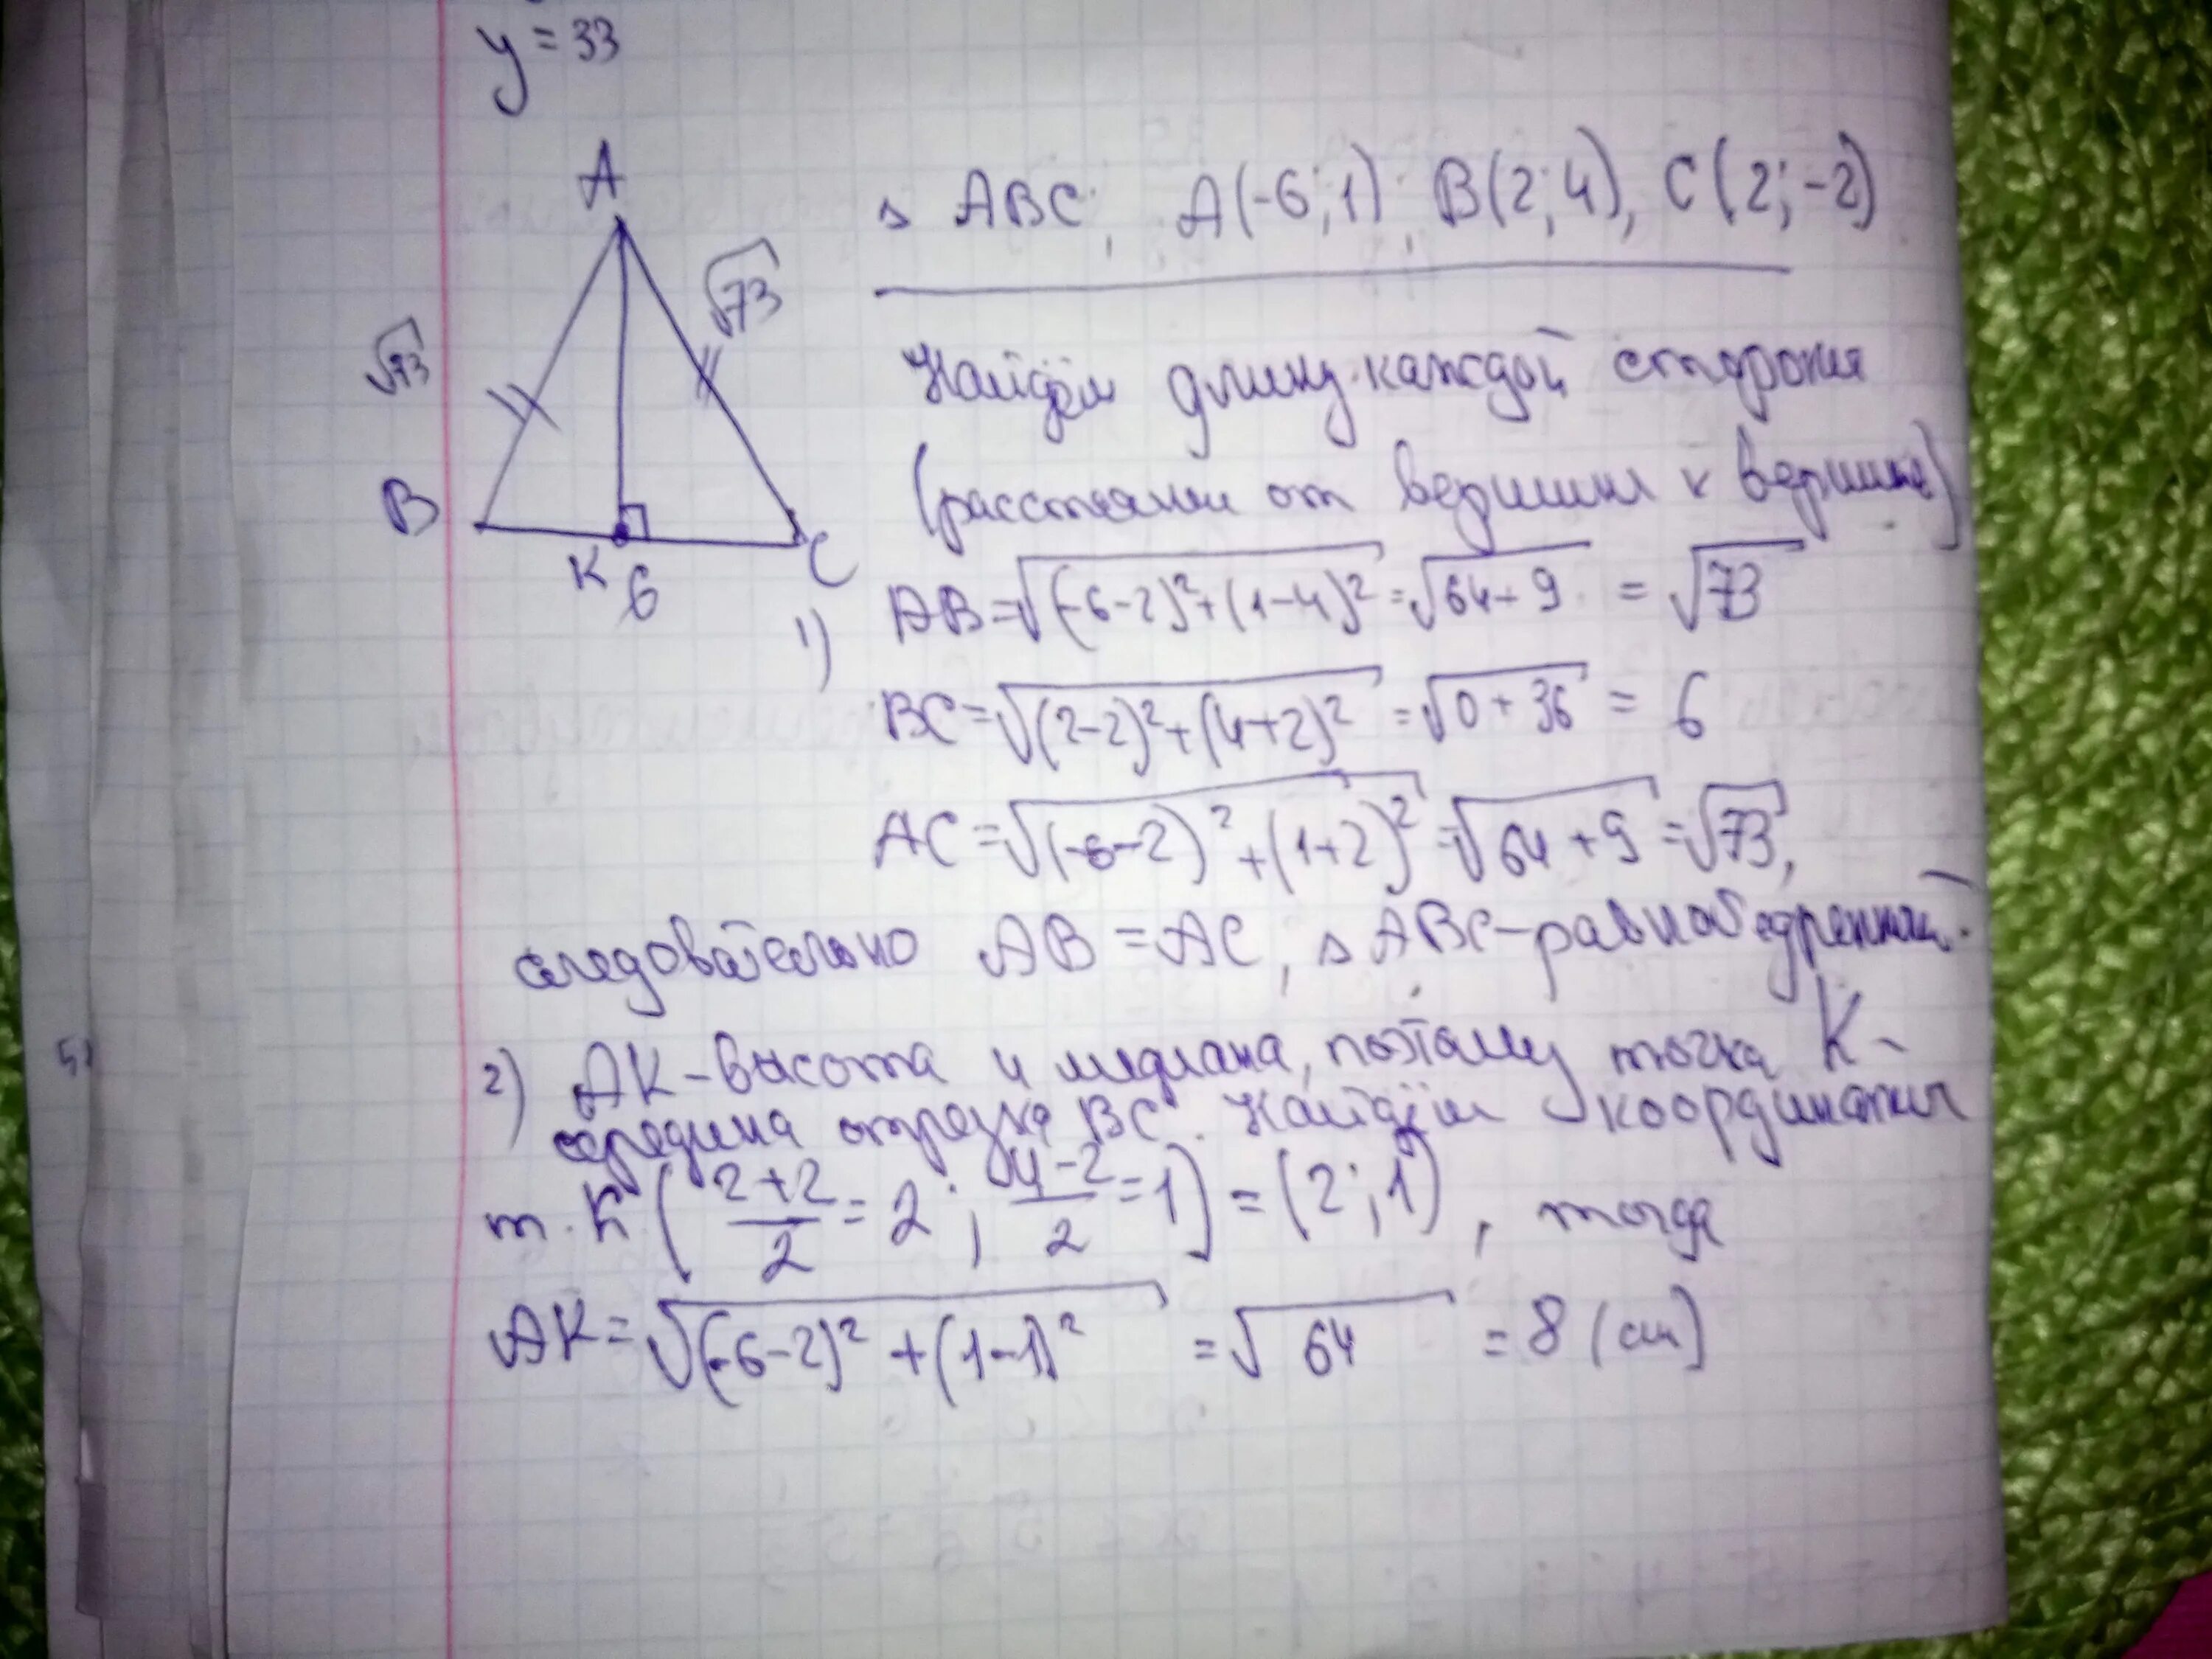 y = 33
A
√73
√73
B
K
6
C
△ ABC; A(-6;1); B(2;4), C(2;-2)
Найдём длину каждой стороны
(расстояние от вершины к вершине)
1) AB=√((-6-2)²+(1-4)²)=√(64+9) = √73
BC=√((2-2)²+(4+2)²)=√(0+36) = 6
AC=√((-6-2)²+(1+2)²)=√(64+9)=√73,
следовательно AB=AC, △ABC-равнобедренный.
2) AK-высота и медиана, поэтому точка K-
середина отрезка BC. Найдём координаты
т. K ( (2+2)/2 = 2 ; (4-2)/2 = 1 ) = (2;1), тогда
AK=√((-6-2)²+(1-1)²) = √64 = 8 (см)